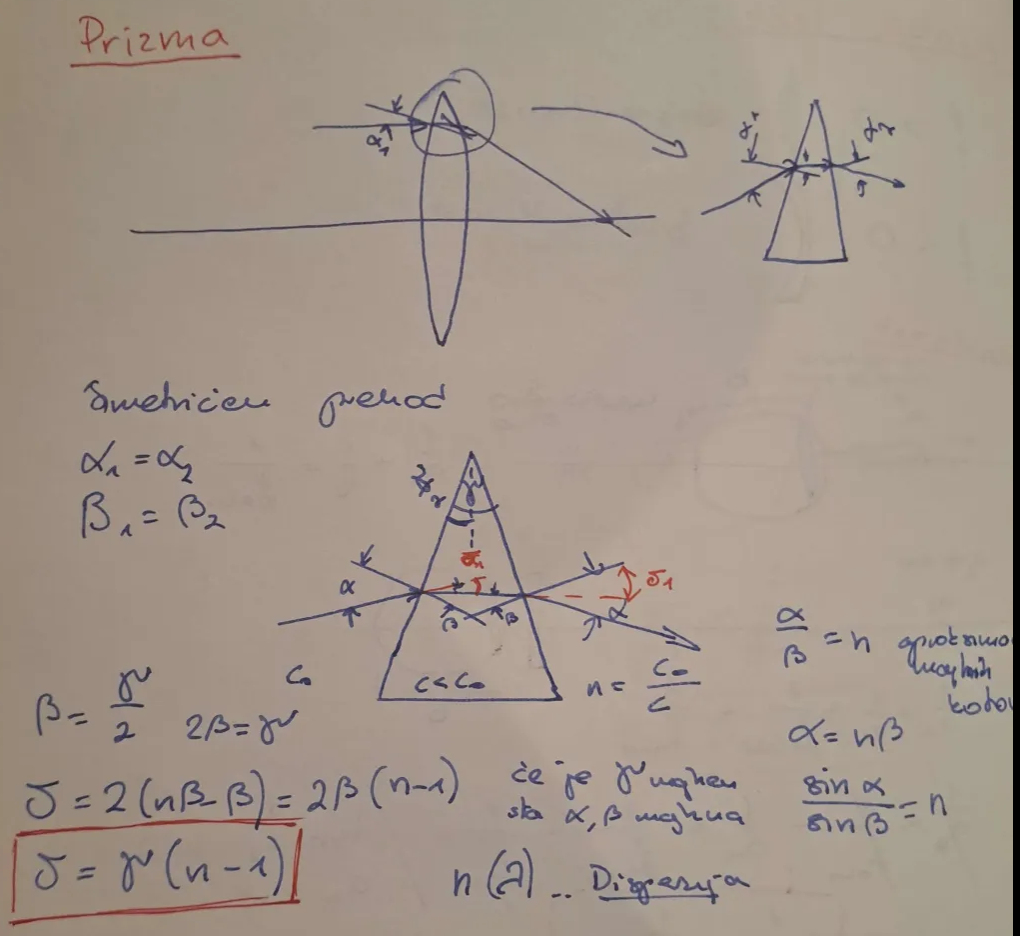 Prizma
α₁
γ
γ
Simetričen prehod
α₁ = α₂
β₁ = β₂
γ
α
δ₁
β
β
α
C₀
C < C₀
n = C₀/C
α/β = n
majhnih
α = nβ
β = γ/2 2β = γ
δ = 2(nβ-β) = 2β(n-1)
če je γ majhen
sta α, β majhna
sin α/sin β = n
δ = γ(n-1)
n(λ) .. Disperzija